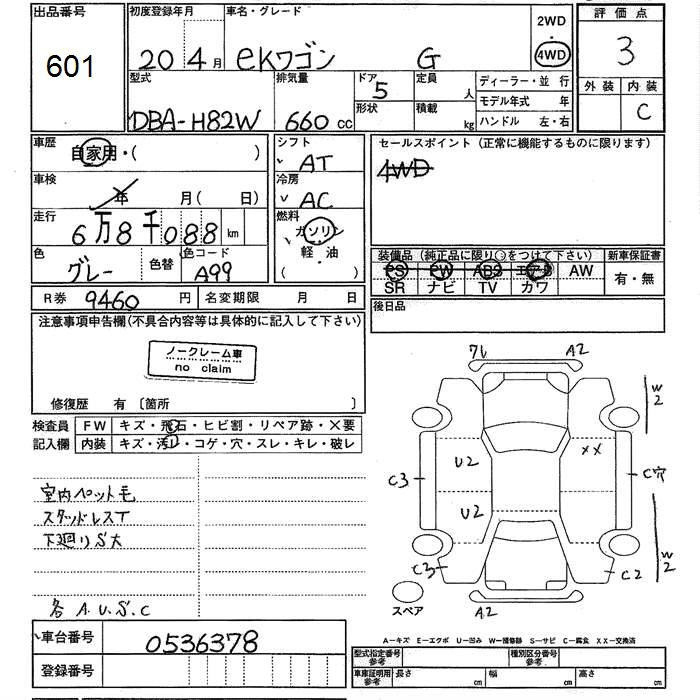 出品番号 601
初度登録年月 20 4月
車名・グレード eKワゴン G
2WD ・ 4WD
評価点 3
外装 内装 C
型式 DBA-H82W
排気量 660 cc
ドア 5 形状
定員 人 積載 kg
ディーラー・並 行
モデル年式 年
ハンドル 左・右
車歴 自家用・( )
車検 年 月( 日)
走行 6万8千088 km
色 グレー 色替 色コード A99
シフト AT
冷房 AC
燃料 ガソリン ・ 軽・油 ( )
セールスポイント (正常に機能するものに限ります)
4WD
装備品 (純正品に限り○をつけて下さい) 新車保証書
PS PW ABS エアB AW 有・無
SR ナビ TV カワ
後日品
R券 9460 円 名変期限 月 日
注意事項申告欄(不具合内容等は具体的に記入して下さい)
ノークレーム車
no claim
修復歴 有 〔箇所 〕
検査員 FW キズ・飛石・ヒビ割・リペア跡・×要
記入欄 内装 キズ・汚レ・コゲ・穴・スレ・キレ・破レ
室内ペット毛
スタッドレスT
下廻りS大
各 A.U.S.C
フレ A2
W2
U2 XX
C3 C穴
U2
W2
C3 C2
スペア A2
車台番号 0536378
登録番号
A-キズ E-エクボ U-凹み W-補修跡 S-サビ C-腐食 XX-交換済
型式指定番号 参考 種別区分番号 参考
車庫証明用 参考 長さ cm 幅 cm 高さ cm